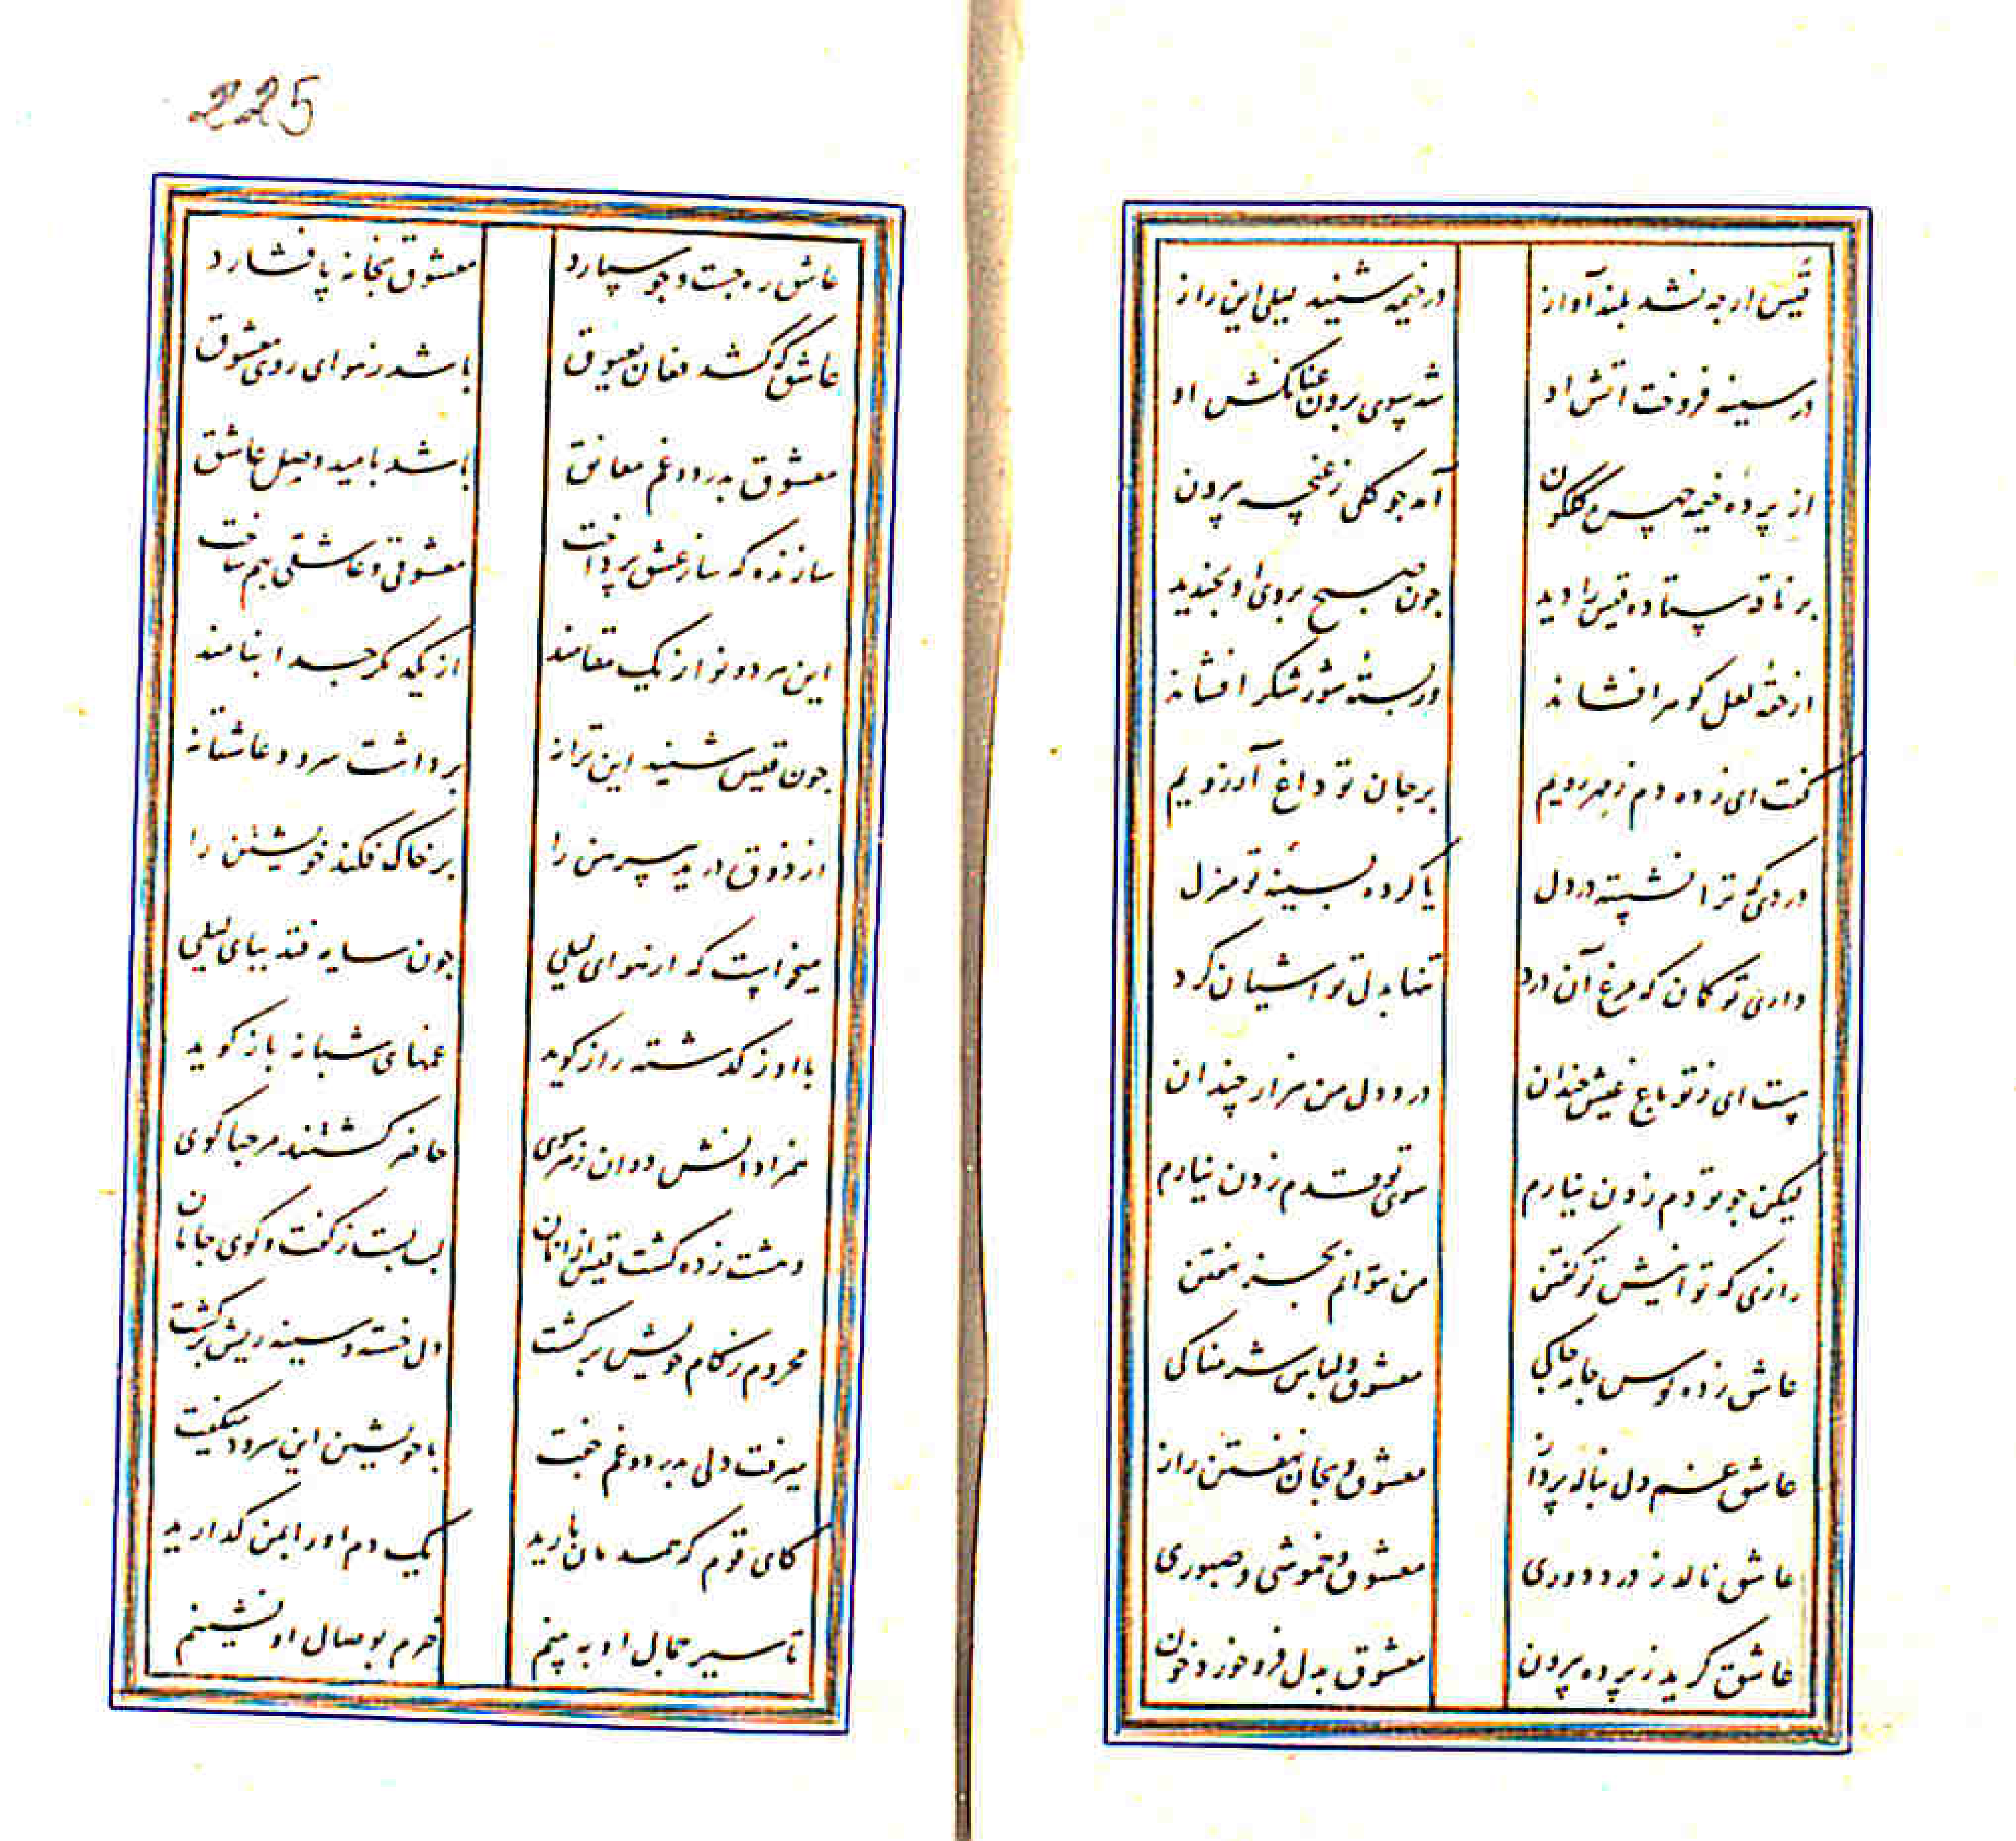 قیس ارچه نشد بلند آواز در خیمه شنید لیلی این راز
در سینه فروخت آتش او شد بسوی برون عنان کش او
از پردهٔ خیمه چهره گلگون آمد چو گلی ز غنچه بیرون
بر ناقه ستاده قیس را دید چون صبح بروی او بخندید
از حقهٔ لعل گوهر افشاند وز بستهٔ شور شکر افشاند
گفت ای زده دم ز مهر رویم بر جان تو داغ آرزویم
دردی که ترا نشسته در دل یا کرده بسینهٔ تو منزل
داری تو گمان که مرغ آن درد تنها بدل تو آشیان کرد
هست ای ز تو باغ عیش خندان درد دل من هزار چندان
لیکن چو تو دم زدن نیارم سوی تو قدم زدن نیارم
رازی که توانیش تو گفتن من نتوانم بجز نهفتن
عاشق زده کوس جامه چاکی معشوق و لباس شرمناکی
عاشق غم دل بناله پرداز معشوق و بجان نهفتن راز
عاشق نالد ز درد دوری معشوق و خموشی و صبوری
عاشق گرید ز پرده بیرون معشوق بدل فرو خورد خون
225
عاشق ره جست و جو سپارد معشوق بخانه پا فشارد
عاشق که کشد فغان بعیوق باشد ز هوای روی معشوق
معشوق بدرد و غم معانق باشد بامید وصل عاشق
سازنده که ساز عشق پرداخت معشوقی و عاشقی بهم ساخت
این هر دو نوا ز یک مقامند از یکدگر جدا بنامند
چون قیس شنید این ترانه برداشت سرود عاشقانه
از ذوق درید پیرهن را بر خاک فکند خویشتن را
میخواست که از هوای لیلی چون سایه فتد بپای لیلی
با او ز گذشته راز گوید غمهای شبانه باز گوید
همزادانش دوان ز هر سوی حاضر گشتند مرحبا گوی
دهشت زده گشت قیس از آنان لب بست ز گفت و گوی جانان
محروم ز کام خویش برگشت دل خسته و سینه ریش برگشت
میرفت دلی بدرد و غم جفت با خویشتن این سرود میگفت
کای قوم که همدمان یارید یک دم او را بمن گذارید
تا سیر جمال او به بینم خرم بوصال او نشینم